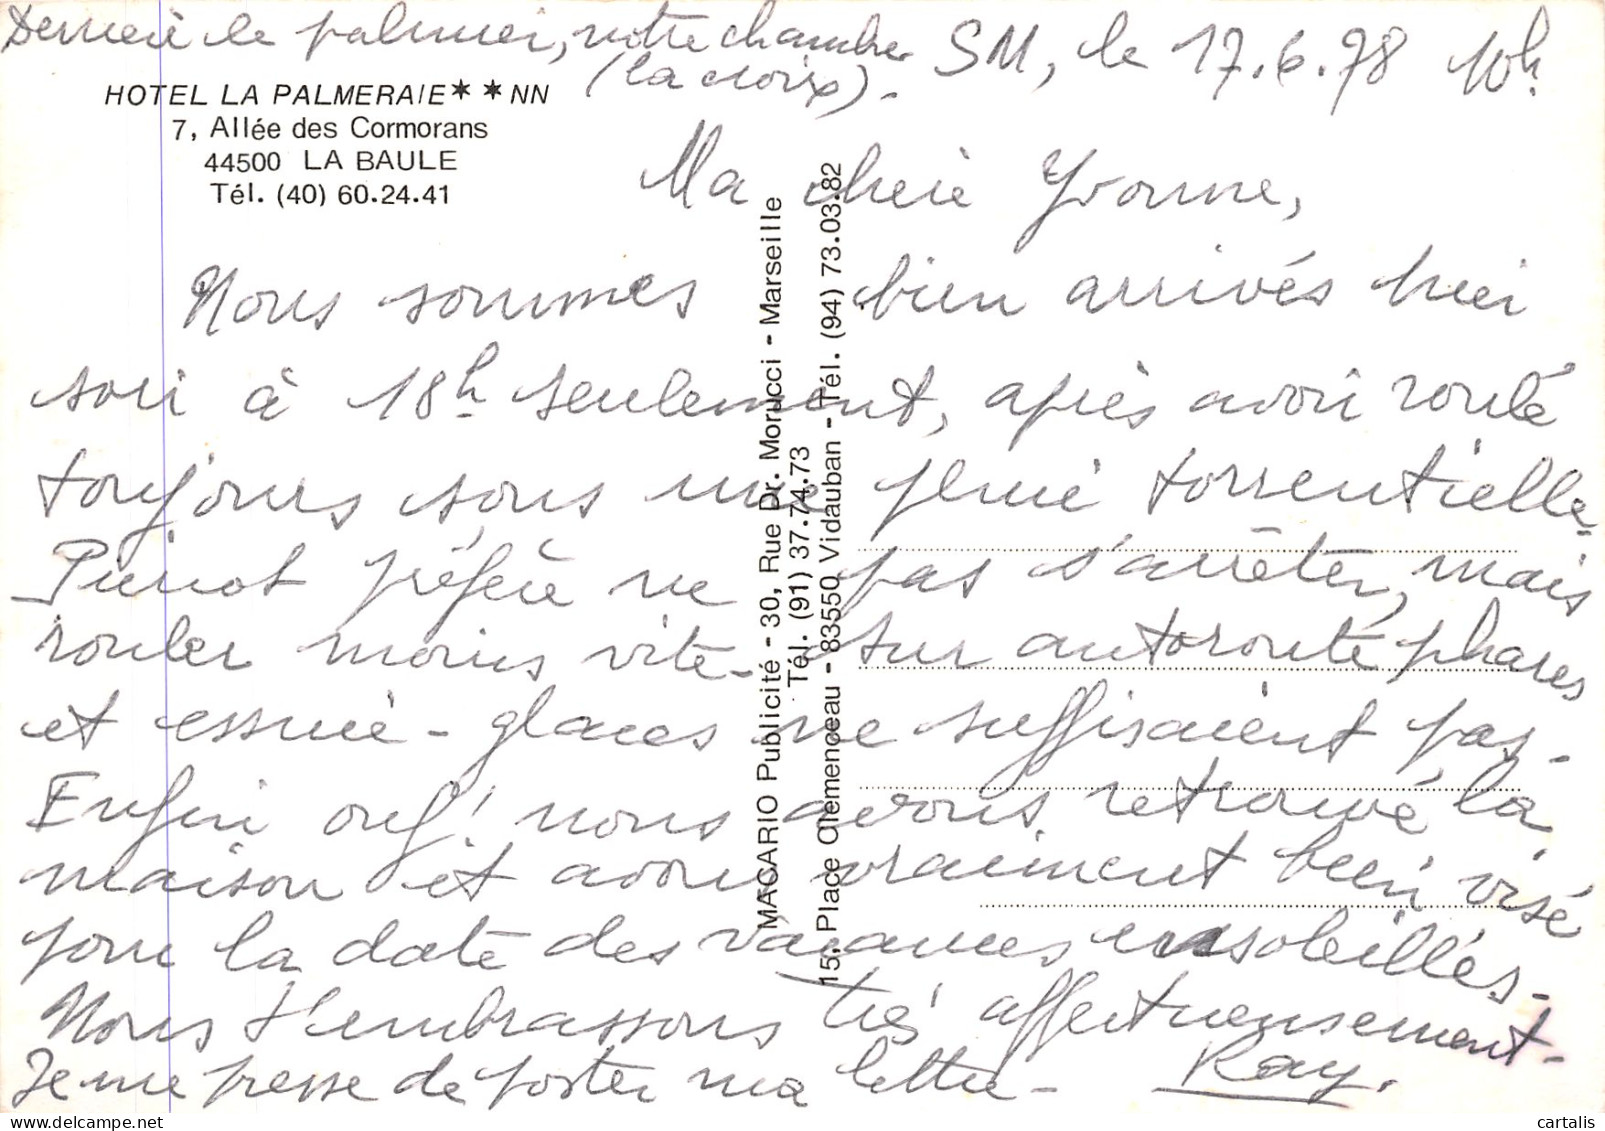 Derrière le palmier, notre chambre
(la croix).-
SM, le 17.6.78 10h
HOTEL LA PALMERAIE★ ★NN
7, Allée des Cormorans
44500 LA BAULE
Tél. (40) 60.24.41
Ma chère Yvonne,
Nous sommes bien arrivés hier
soir à 18h seulement, après avoir roulé
toujours sous une pluie torrentielle-
Pierrot préfère ne pas s'arrêter, mais
rouler moins vite- sur autoroute phares
et essuie-glaces ne suffisaient pas-
Enfin ouf! nous avons retrouvé la
maison et avons vraiment bien visé
pour la date des vacances ensoleillés-
Nous t'embrassons très affectueusement-
Je me presse de poster ma lettre- Ray.
MACARIO Publicité - 30, Rue Dr. Morucci - Marseille
Tél. (91) 37.74.73
15, Place Clemenceau - 83550 Vidauban - Tél. (94) 73.03.82
cartalis